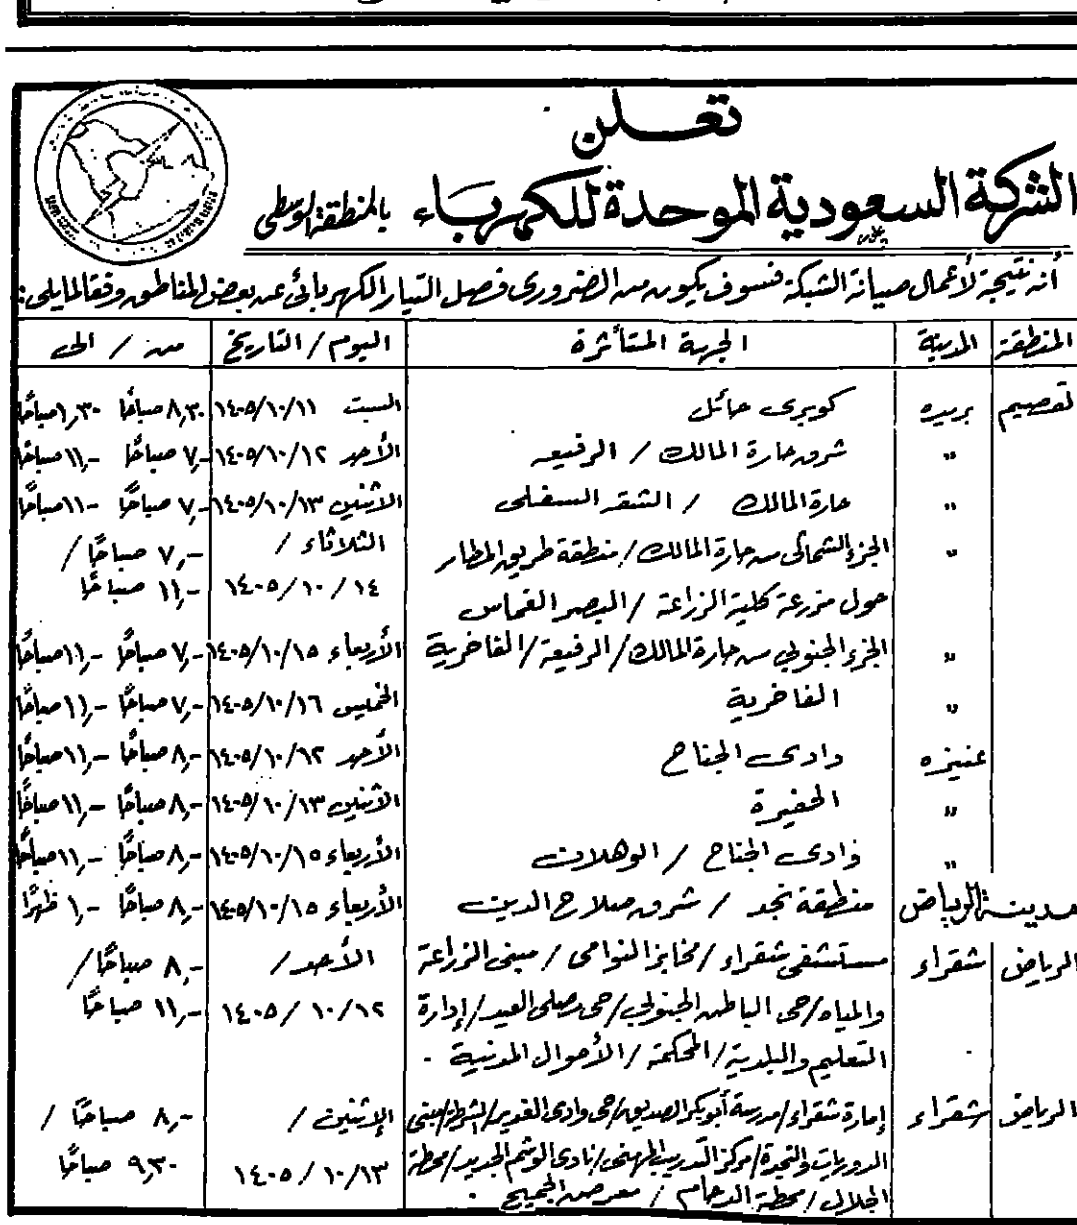 تعلن
الشركة السعودية الموحدة للكهرباء بالمنطقة الوسطى
أنه نتيجة لأعمال صيانة الشبكة فسوف يكون من الضروري فصل التيار الكهربائي عن بعض المناطق وفقا لما يلي:
المنطقة المدينة الجهة المتأثرة اليوم / التاريخ من / الى
لقصيم بريده كوبرى حائل السبت ١٤٠٥/١٠/١١ ٨,٣٠ صباحًا ١,٣٠ صباحًا
" شرق حارة المالك / الرفيعه الأحد ١٤٠٥/١٠/١٢ ٧,- صباحًا ١١,- صباحًا
" حارة المالك / الشقه السفلى الاثنين ١٤٠٥/١٠/١٣ ٧,- صباحًا ١١- صباحًا
" الجزء الشمالى من حارة المالك / منطقة طريق المطار الثلاثاء / ٧,- صباحًا /
حول مزرعة كلية الزراعة / البصر القماس ١٤٠٥/١٠/١٤ ١١,- صباحًا
" الجزء الجنوبى من حارة المالك / الرفيعة / الفاخرية الأربعاء ١٤٠٥/١٠/١٥ ٧,- صباحًا ١١,- صباحًا
" الفاخرية الخميس ١٤٠٥/١٠/١٦ ٧,- صباحًا ١١,- صباحًا
عنيزه وادى الجناح الأحد ١٤٠٥/١٠/١٢ ٨,- صباحًا ١١,- صباحًا
" الحفيرة الأثنين ١٤٠٥/١٠/١٣ ٨,- صباحًا ١١,- صباحًا
" وادى الجناح / الوهلات الأربعاء ١٤٠٥/١٠/١٥ ٨,- صباحًا ١١,- صباحًا
مدينة الرياض منطقة نجد / شرق صلاح الدين الأربعاء ١٤٠٥/١٠/١٥ ٨,- صباحًا ١,- ظهرًا
الرياض شقراء مستشفى شقراء / مخابز النوامى / مبنى الزراعة الأحد / ٨,- صباحًا /
والمياه / حى الباطن الجنوبى / حى مصلى العيد / إدارة ١٤٠٥/١٠/١٢ ١١,- صباحًا
التعليم والبلدية / المحكمة / الأحوال المدنية .
الرياض شقراء إمارة شقراء / مدرسة أبوبكر الصديق / حى وادى الغدير / الشرطة / مبنى الإثنين / ٨,- صباحًا /
الدوريات والنجدة / مركز التدريب المهنى / نادى الوشم الجديد / محطة ١٤٠٥/١٠/١٣ ٩,٣٠ صباحًا
الجلال / محطة الدحام / معرض الجميح .